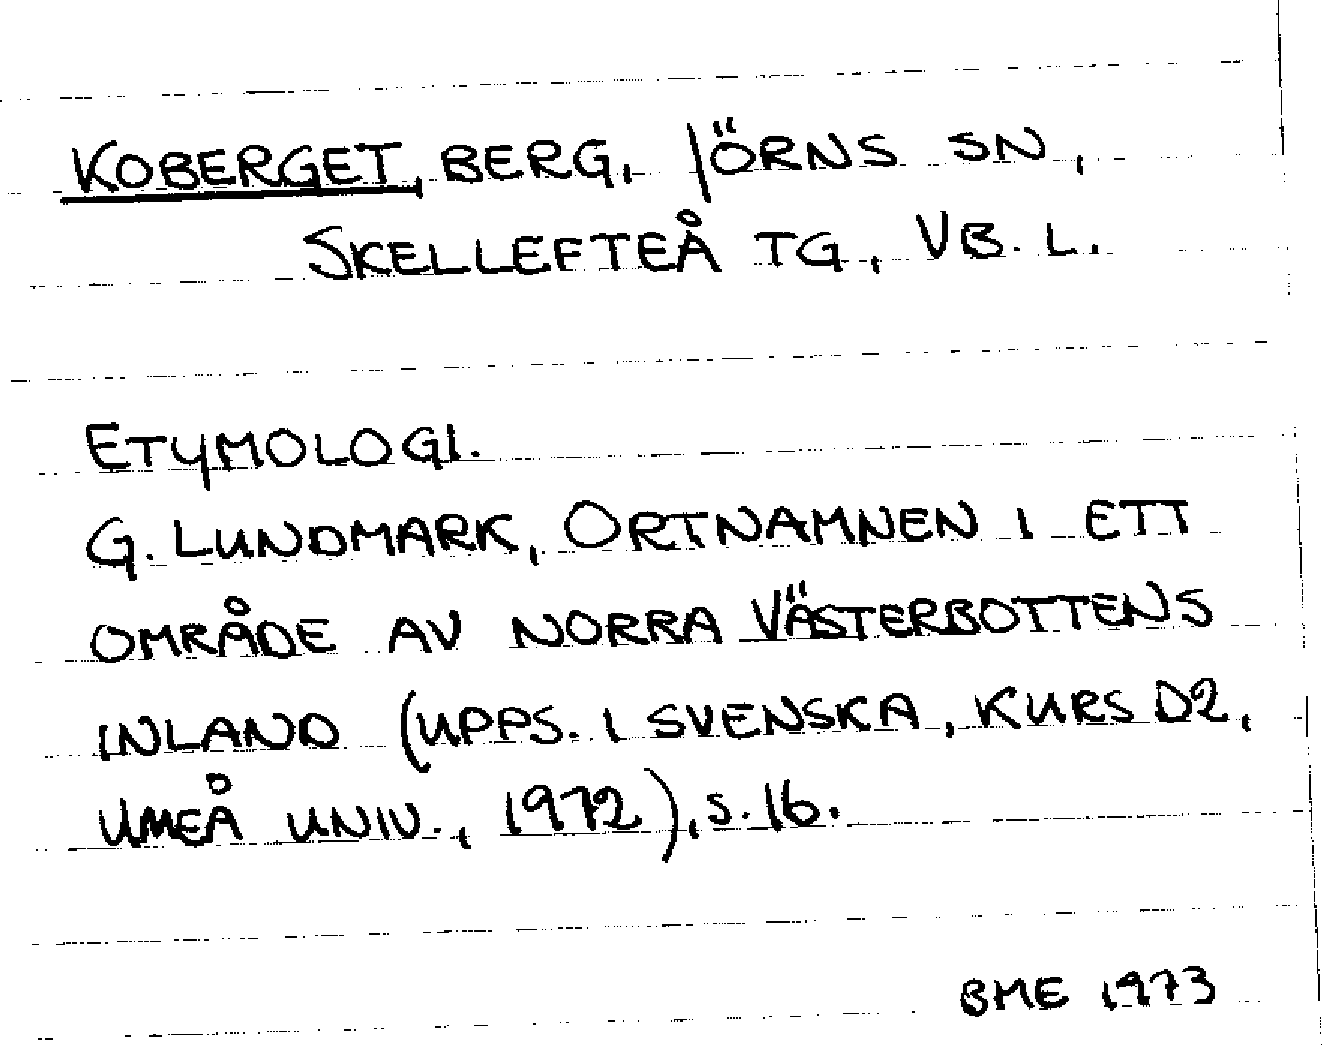 KOBERGET, BERG, JÖRNS SN,
SKELLEFTEÅ TG, VB. L.
ETYMOLOGI.
G. LUNDMARK, ORTNAMNEN I ETT
OMRÅDE AV NORRA VÄSTERBOTTENS
INLAND (UPPS. I SVENSKA, KURS D2,
UMEÅ UNIV., 1972), S. 16.
BME 1973